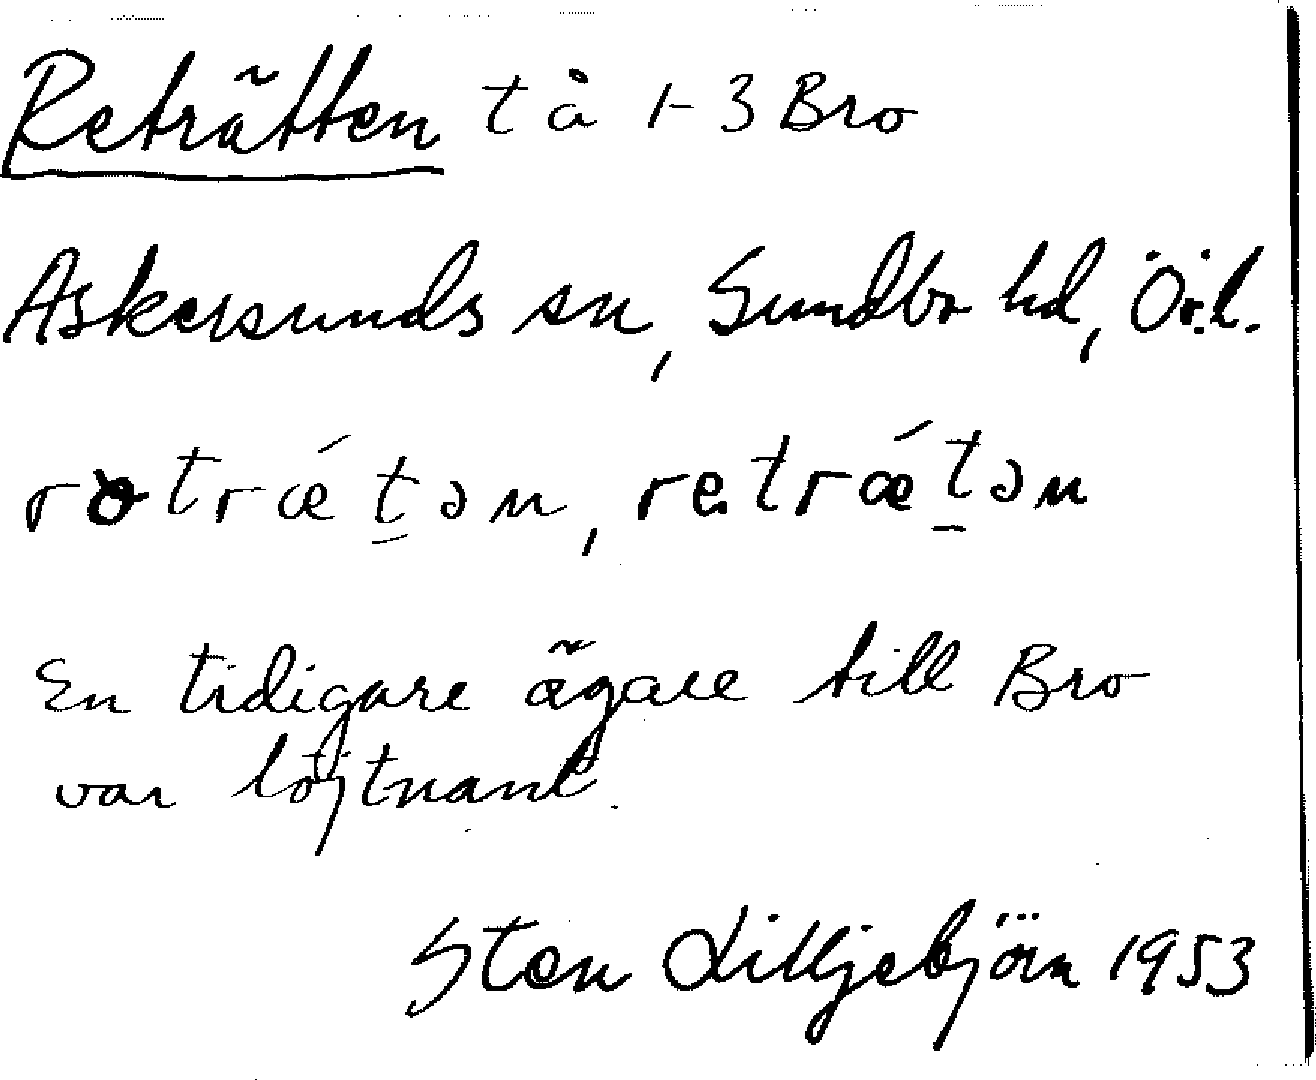 Reträtten tå 1-3 Bro
Askersunds sn, Sundbo hd, Ör.l.
rotrǽt̠ən, retrǽt̠ən
En tidigare ägare till Bro
var löjtnant.
Sten Lilljebjörn 1953